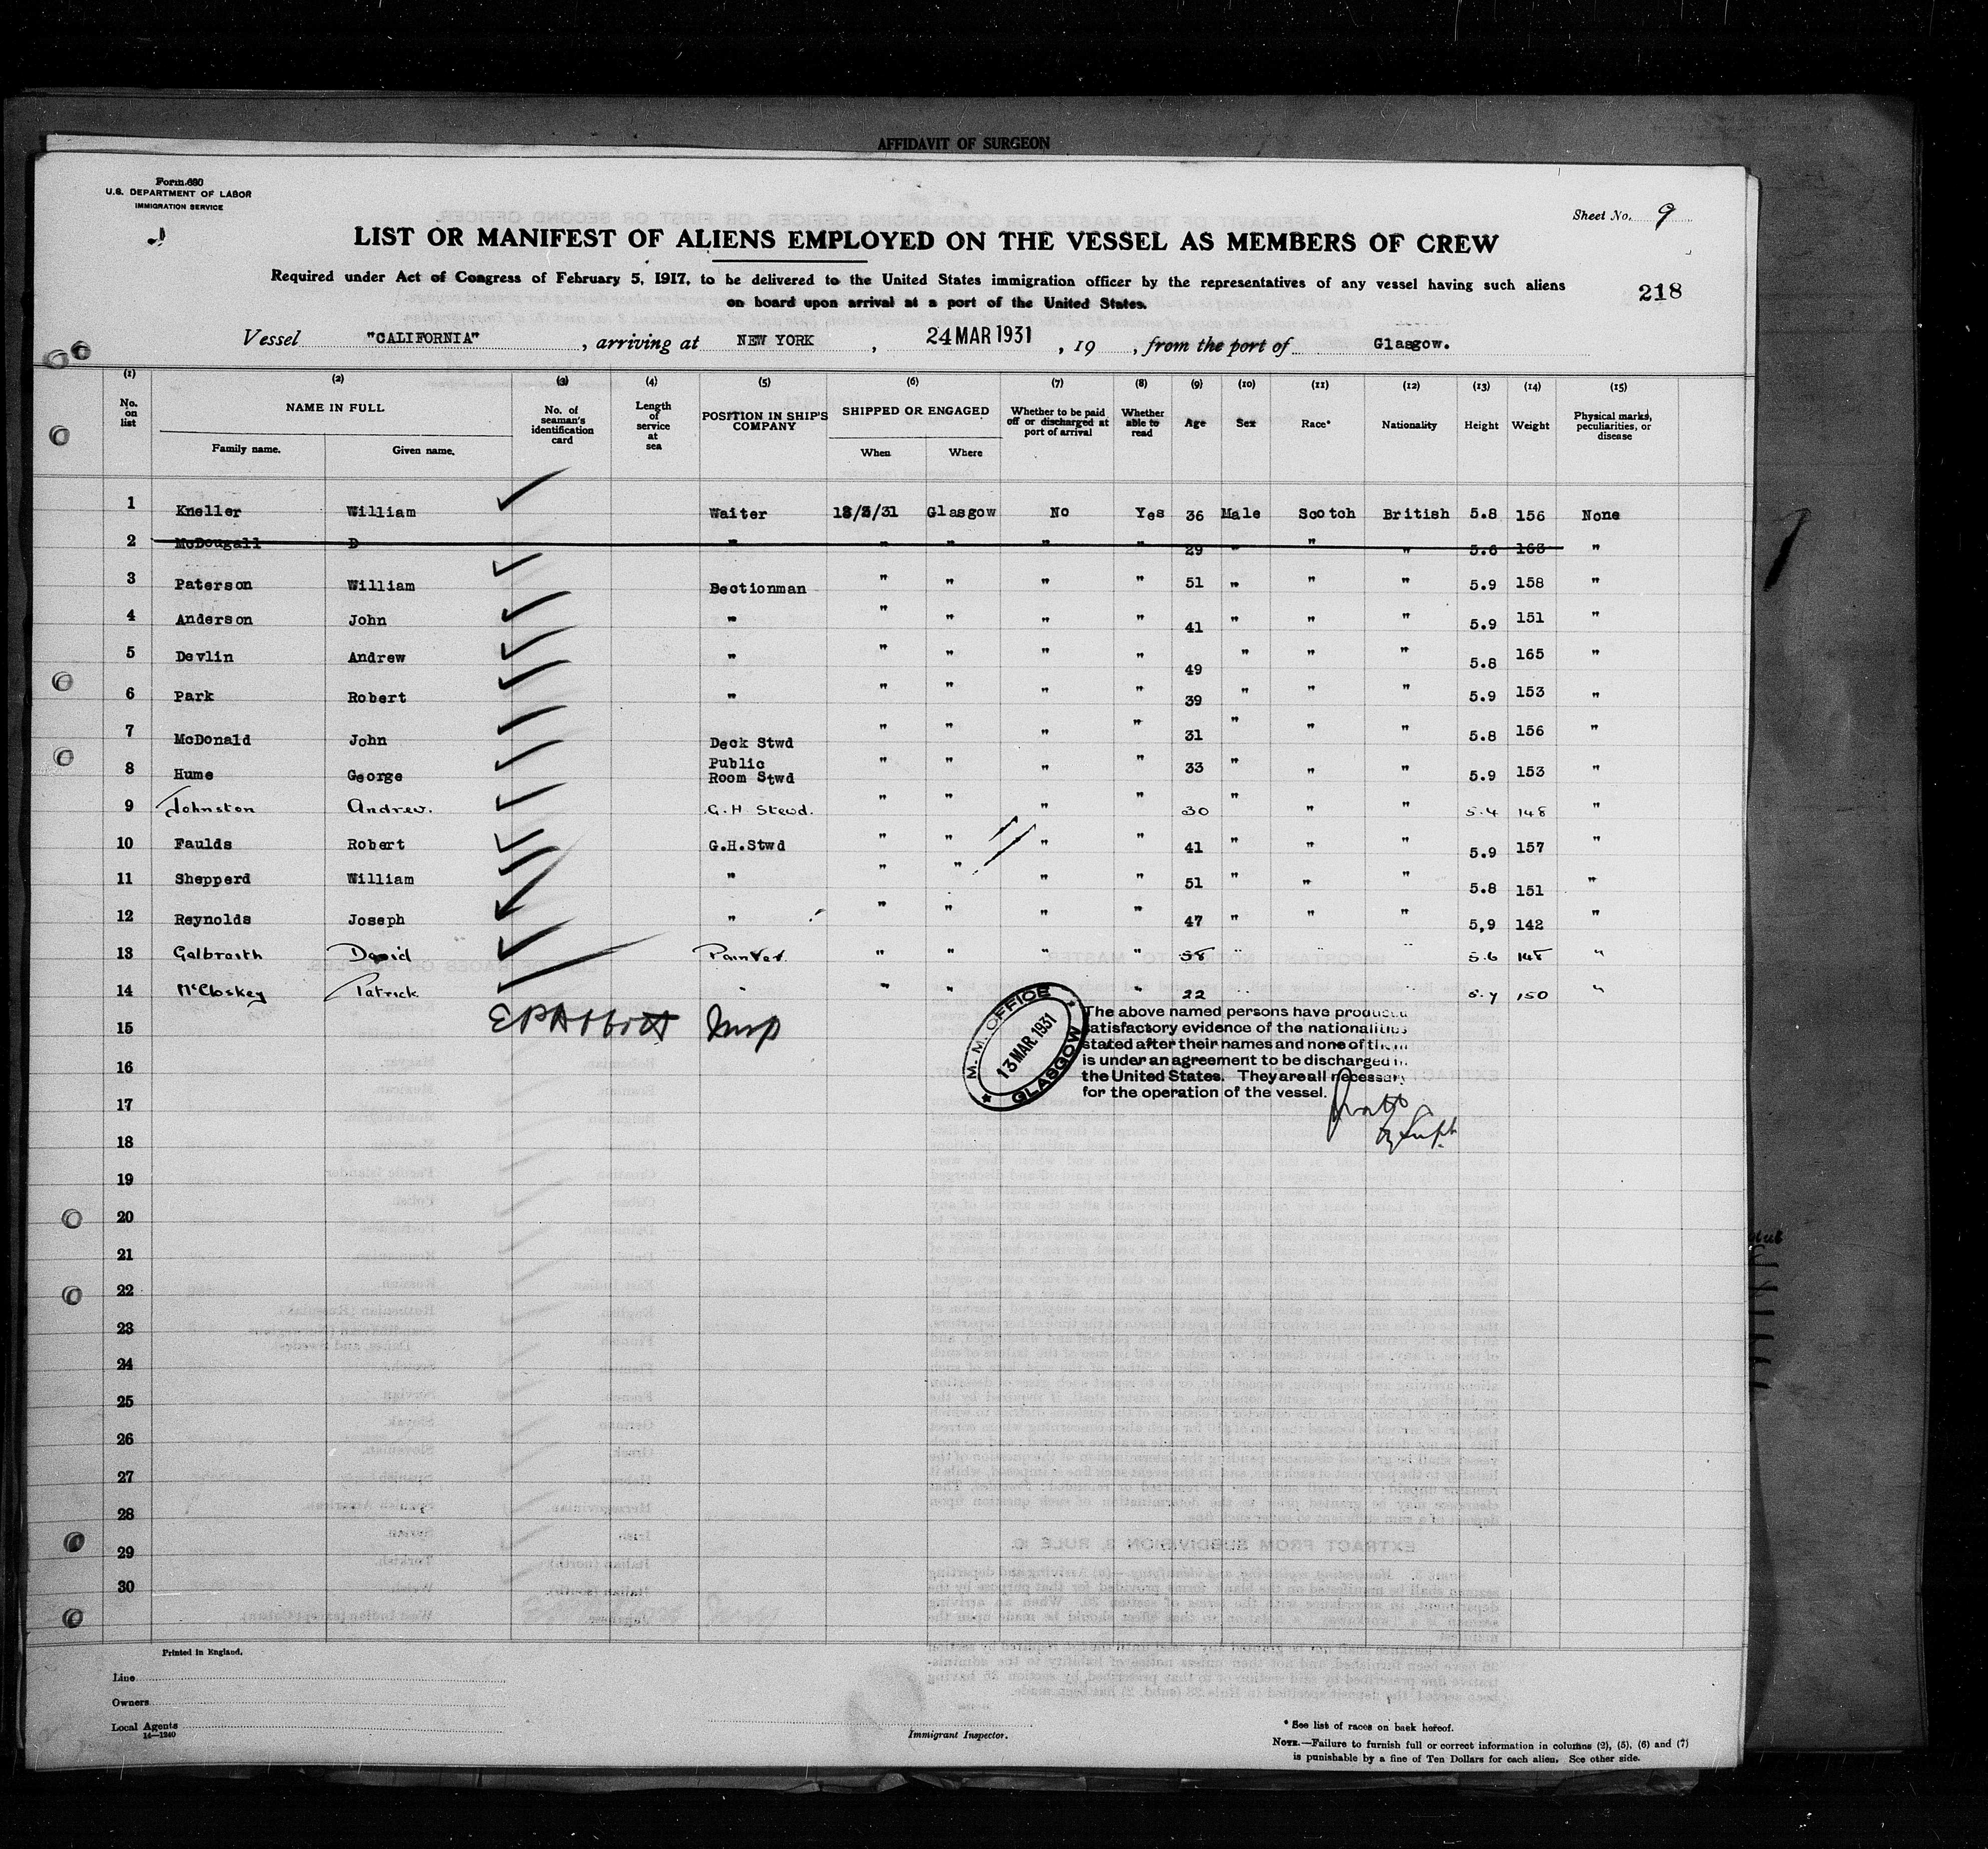 AFFIDAVIT OF SURGEON
Form 680
U.S. DEPARTMENT OF LABOR
IMMIGRATION SERVICE
Sheet No. 9
LIST OR MANIFEST OF ALIENS EMPLOYED ON THE VESSEL AS MEMBERS OF CREW
Required under Act of Congress of February 5, 1917, to be delivered to the United States immigration officer by the representatives of any vessel having such aliens
on board upon arrival at a port of the United States.
218
Vessel "CALIFORNIA", arriving at NEW YORK, 24 MAR 1931, 19 , from the port of Glasgow.
(1) (2) (3) (4) (5) (6) (7) (8) (9) (10) (11) (12) (13) (14) (15)
No. on list NAME IN FULL Family name. Given name. No. of seaman's identification card Length of service at sea POSITION IN SHIP'S COMPANY SHIPPED OR ENGAGED When Where Whether to be paid off or discharged at port of arrival Whether able to read Age Sex Race* Nationality Height Weight Physical marks, peculiarities, or disease
1 Kneller William Waiter 13/3/31 Glasgow No Yes 36 Male Scotch British 5.8 156 None
2 McDougall D " " " " " 29 " " " 5.6 163 "
3 Paterson William Bectionman " " " " 51 " " " 5.9 158 "
4 Anderson John " " " " " 41 " " " 5.9 151 "
5 Devlin Andrew " " " " " 49 " " " 5.8 165 "
6 Park Robert " " " " " 39 " " " 5.9 153 "
7 McDonald John Deck Stwd " " " " 31 " " " 5.8 156 "
8 Hume George Public Room Stwd " " " " 33 " " " 5.9 153 "
9 Johnston Andrew. G.H Stewd. " " " " 30 " " " 5.4 148 "
10 Faulds Robert G.H.Stwd " " " " 41 " " " 5.9 157 "
11 Shepperd William " " " " " 51 " " " 5.8 151 "
12 Reynolds Joseph " " " " " 47 " " " 5,9 142 "
13 Galbraith David Painter. " " " " 58 " " " 5.6 148 "
14 McCloskey Patrick " " " " " 22 " " " 5.7 150 "
15
16
17
18
19
20
21
22
23
24
25
26
27
28
29
30
M. M. OFFICE
13 MAR. 1931
GLASGOW
The above named persons have produced
satisfactory evidence of the nationalities
stated after their names and none of them
is under an agreement to be discharged in
the United States. They are all necessary
for the operation of the vessel.
Printed in England.
Line
Owners
Local Agents
14—1240
Immigrant Inspector.
* See list of races on back hereof.
NOTE.—Failure to furnish full or correct information in columns (2), (5), (6) and (7)
is punishable by a fine of Ten Dollars for each alien. See other side.